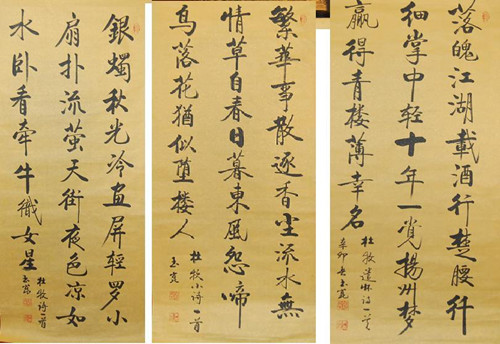 落魄江湖載酒行楚腰纤
细掌中轻十年一觉揚州梦
赢得青楼薄幸名
杜牧遣怀诗一首
辛卯
繁華事散逐香尘流水無
情草自春日暮東風怨啼
鳥落花猶似墮楼人
杜牧小诗一首
銀燭秋光冷画屏轻罗小
扇扑流萤天街夜色凉如
水卧看牵牛織女星
杜牧诗一首